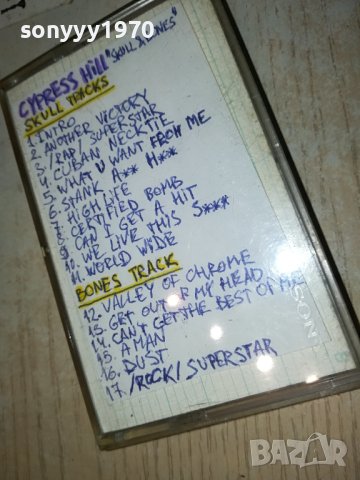 sonyyy1970
CYPRESS HILL "SKULL & BONES"
SKULL TRACKS
1. INTRO
2. ANOTHER VICTORY
3. /RAP/ SUPERSTAR
4. CUBAN NECKTIE
5. WHAT U WANT FROM ME
6. STANK A** H**
7. HIGH LIFE
8. CERTIFIED BOMB
9. CAN I GET A HIT
10. WE LIVE THIS S***
11. WORLD WIDE
BONES TRACK
12. VALLEY OF CHROME
13. GET OUT OF MY HEAD
14. CAN'T GET THE BEST OF ME
15. A MAN
16. DUST
17. /ROCK/ SUPERSTAR
SON
BAZAR
bg